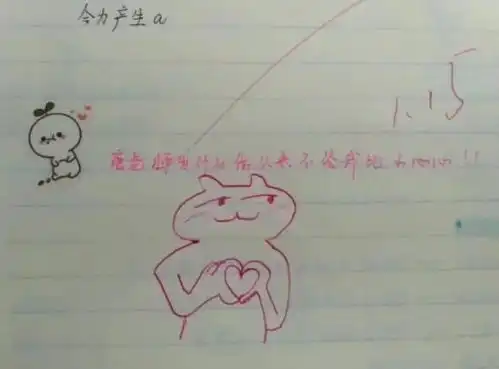 合力产生a
1.15
老师为什么从来不给我小心心!!